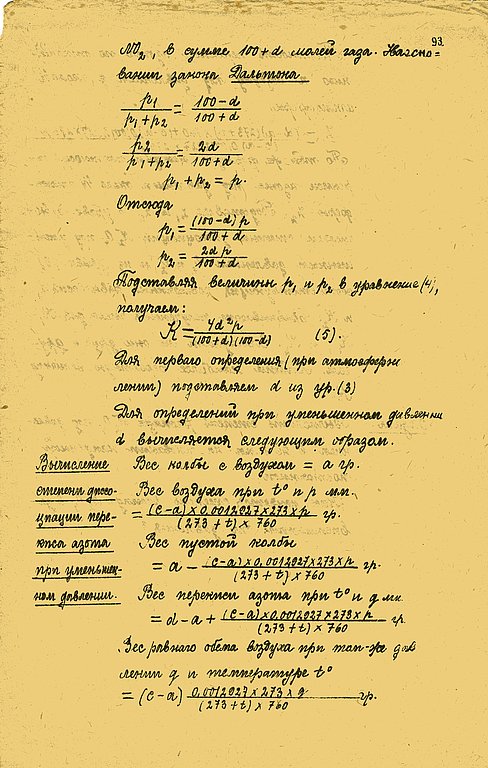 93.
NO₂, в сумме 100+d молей газа. На осно=
вании закона Дальтона
p₁/(p₁+p₂) = (100-d)/(100+d)
p₂/(p₁+p₂) = 2d/(100+d)
p₁ + p₂ = p
Отсюда
p₁ = (100-d)p/(100+d)
p₂ = 2dp/(100+d)
Подставляя величины p₁ и p₂ в уравнение (4),
получаем:
K = 4d²p/((100+d)(100-d)) (5).
Для первого определения (при атмосферн
лении) подставляем d из ур. (3)
Для определений при уменьшенном давлении
d вычисляется следующим образом.
Вычисление
степени диссо-
циации пере-
киси азота
при уменьшен-
ном давлении.
Вес колбы с воздухом = a гр.
Вес воздуха при t° и p мм.
= (c-a)×0.0012927×273×p/((273+t)×760) гр.
Вес пустой колбы
= a - (c-a)×0.0012927×273×p/((273+t)×760) гр.
Вес перекиси азота при t° и q мм.
= d-a + (c-a)×0.0012927×273×p/((273+t)×760) гр.
Вес равного объема воздуха при том-же дав
лении q и температуре t°
= (c-a) 0.0012927×273×q/((273+t)×760) гр.